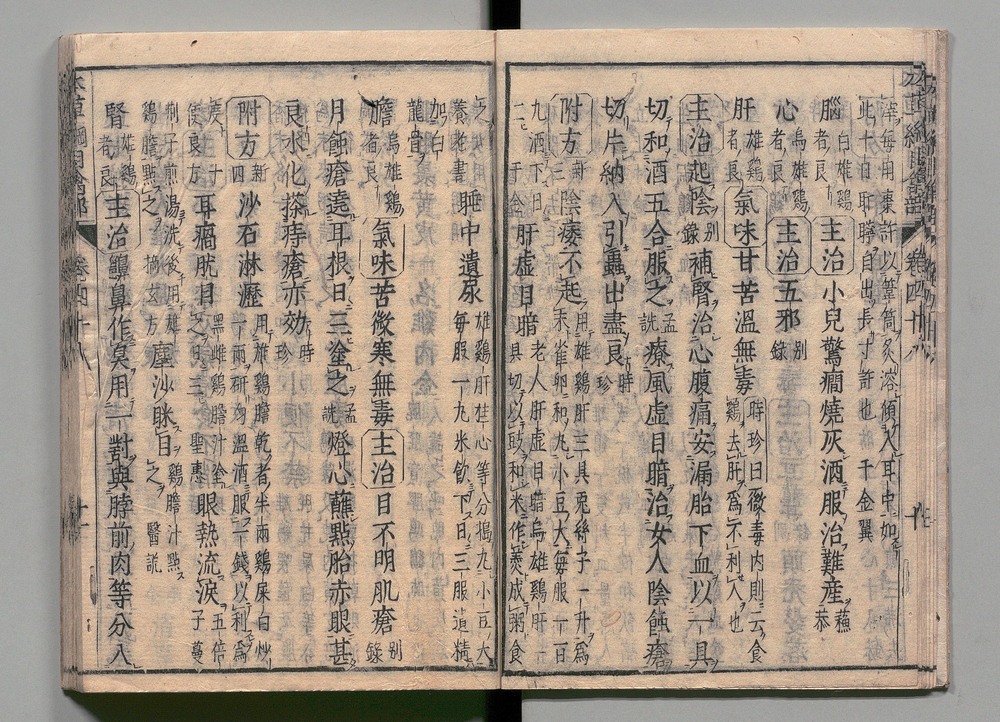 滓每用棗許以葦筒炙溶傾入耳中如
此十日耵聹自出長寸許也 千金翼
腦 白雄雞者良 主治 小兒驚癇燒灰酒服治難産 蘇恭
心 烏雄雞者良 主治 五邪 别錄
肝 雄雞者良 氣味 甘苦溫無毒 時珍曰微毒内則云食雞去肝爲不利人也
主治 起陰 别錄 補腎治心腹痛安漏胎下血以一具
切和酒五合服之 孟詵 療風虚目暗治女人陰蝕瘡
切片納入引蟲出盡良 時珍
附方 新三 陰痿不起 用雄雞肝三具兎絲子一升爲末雀卵和丸小豆大每服一百
丸酒下日二 千金 肝虚目暗 老人肝虚目暗烏雄雞肝一具切以豉和米作羹成粥食
之 養老書 睡中遺尿 雄雞肝桂心等分搗丸小豆大每服一丸米飲下日三服遺精
加白龍骨
膽 烏雄雞者良 氣味 苦微寒無毒 主治 目不明肌瘡 别錄
月蝕瘡遶耳根日三塗之 孟詵 燈心蘸點胎赤眼甚
良水化搽痔瘡亦効 時珍
附方 新四 沙石淋瀝 用雄雞膽乾者半兩雞屎白炒一兩研勻溫酒服一錢以利爲
度 十便良方 耳瘑肬目 黑雌雞膽汁塗之日三 聖惠 眼熱流淚 五倍子蔓
荆子煎湯洗後用雄雞膽點之 摘玄方 塵沙眯目 雞膽汁點之 醫說
腎 雄雞者良 主治 齆鼻作臭用一對與脖前肉等分入
本草綱目禽部 卷四十八 十一